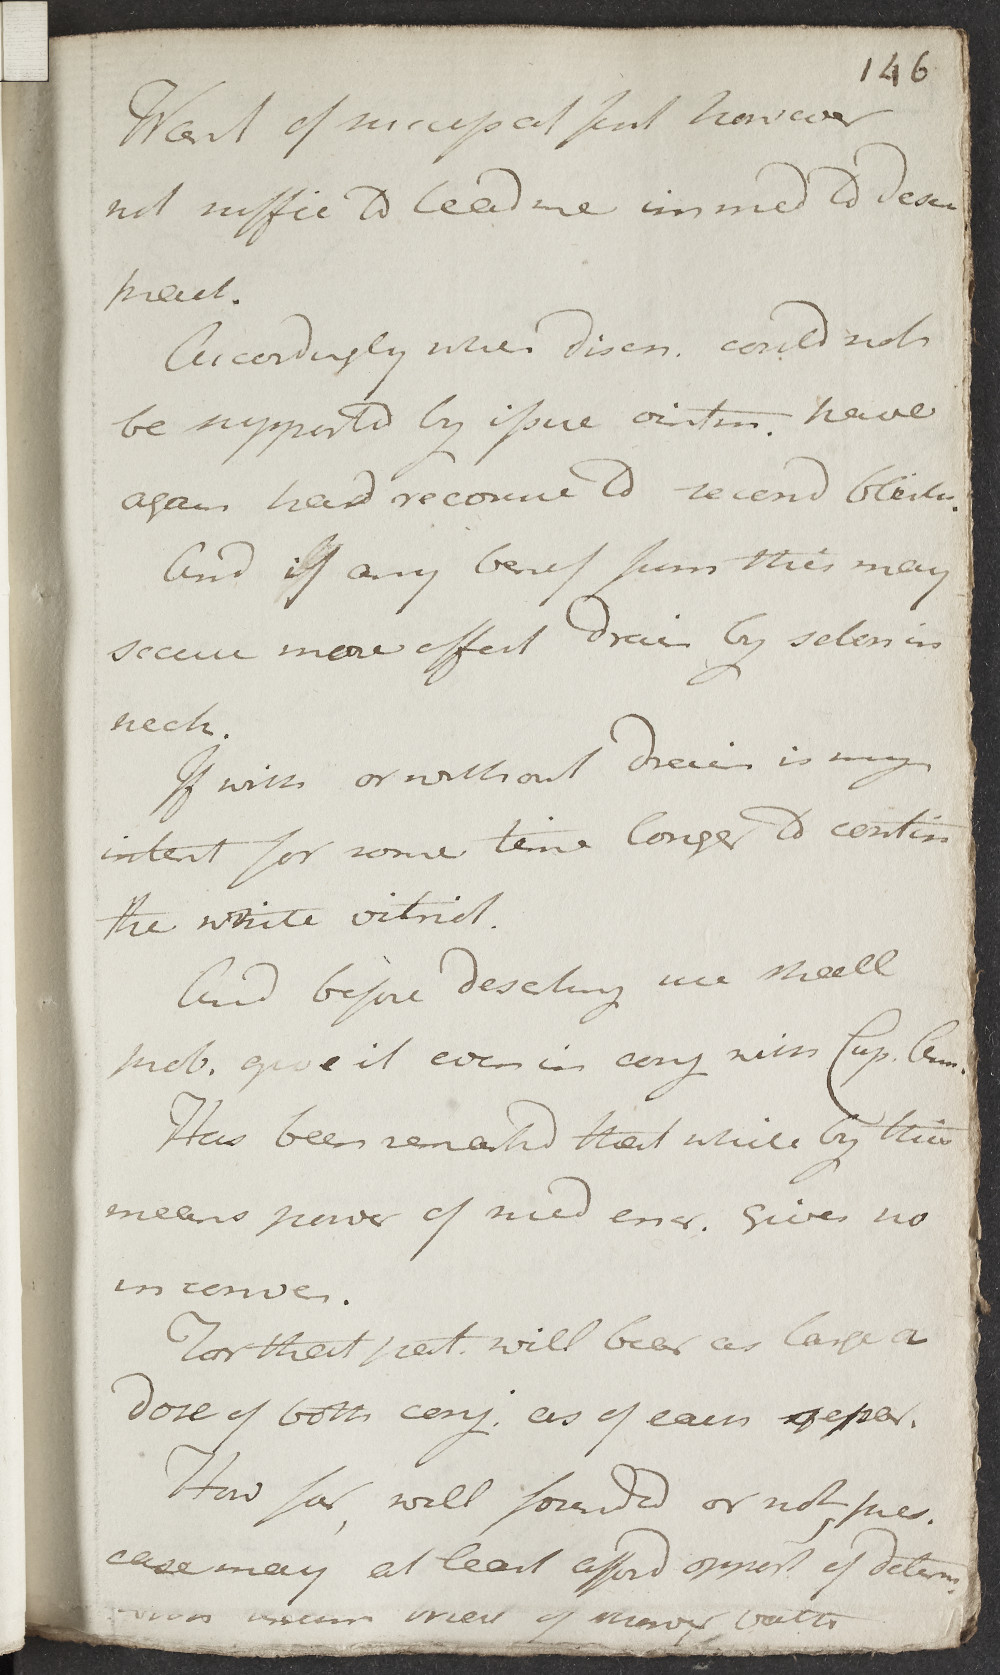 146
Want of success at first however
not suffic to lead me immed to desert
pract.
Accordingly when disch. could not
be supported by issue ointm. have
again had recourse to second blister.
And if any benef from this may
secure more effect drain by seton in
neck.
If with or without drain is my
intent for some time longer to contin
the white vitriol.
And before deserting we shall
prob. give it even in conj with Cup. Am.
Has been remarked that while by this
means power of med encr. gives no
inconven.
For that pat. will bear as large a
dose of both conj. as of each separ.
How far, well founded or not, pres.
case may at least afford opport of determ.
trial of